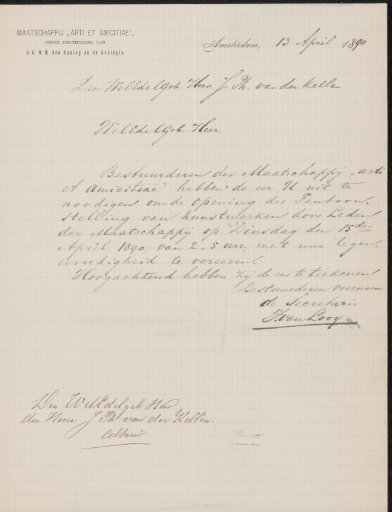 MAATSCHAPPIJ „ARTI ET AMICITIAE",
ONDER BESCHERMING VAN
H.H. M.M. den Koning en de Koningin.
Amsterdam, 13 April 1890
Den WelEdelGeb. Heer J. Ph. van der Kellen
WelEdelGeb. Heer
Bestuurderen der Maatschappij „Arti
et Amicitiae" hebben de eer U uit te
noodigen om de opening der Tentoon-
stelling van kunstwerken door leden
der Maatschappij op Dinsdag den 15den
April 1890, van 2-5 ure, met uwe tegen-
woordigheid te vereeren.
Hoogachtend hebben zij de eer te teekenen
Bestuurderen voornoemd
de Secretaris
Den WelEdelgeb Heer
den Heer J. Ph. van der Kellen